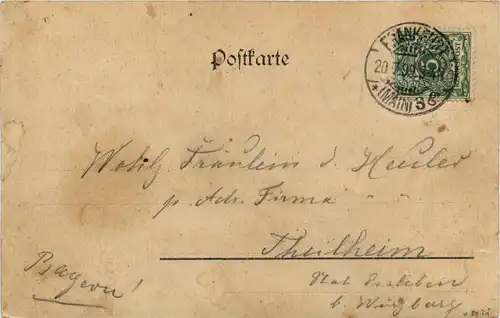 Postkarte
FRANKFURT
20
(MAIN)
5
Wohlg. Fräulein
p. Adr. Firma "
Theilheim
Post Essleben
b. Würzburg
Bayern!